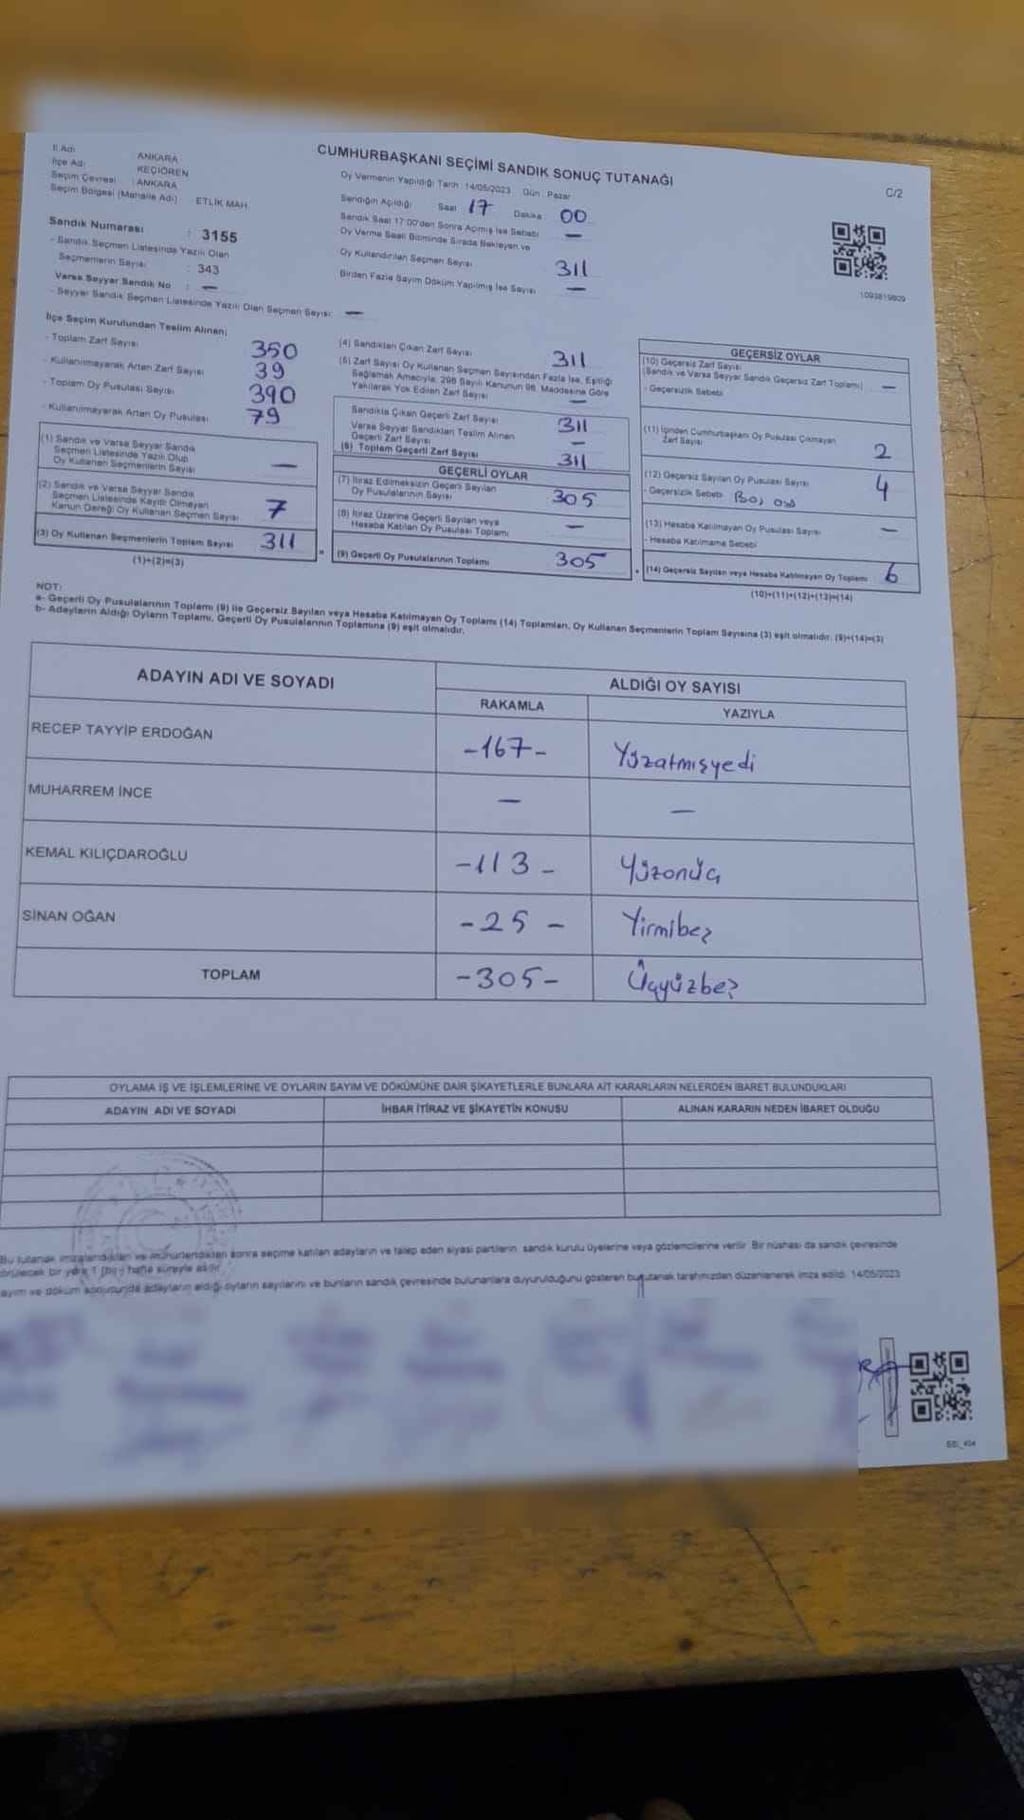 CUMHURBAŞKANI SEÇİMİ SANDIK SONUÇ TUTANAĞI
C/2
İl Adı ANKARA
İlçe Adı KEÇİÖREN
Seçim Çevresi : ANKARA
Seçim Bölgesi (Mahalle Adı) ETLİK MAH.
Sandık Numarası : 3155
- Sandık Seçmen Listesinde Yazılı Olan
Seçmenlerin Sayısı : 343
Varsa Seyyar Sandık No : —
- Seyyar Sandık Seçmen Listesinde Yazılı Olan Seçmen Sayısı: —
Oy Vermenin Yapıldığı Tarih 14/05/2023 Gün : Pazar
Sandığın Açıldığı Saat 17 Dakika 00
Sandık Saat 17:00'den Sonra Açılmış İse Sebebi —
Oy Verme Saati Bitiminde Sırada Bekleyen ve
Oy Kullandırılan Seçmen Sayısı 311
Birden Fazla Sayım Döküm Yapılmış İse Sayısı —
1093819809
İlçe Seçim Kurulundan Teslim Alınan;
- Toplam Zarf Sayısı 350
- Kullanılmayarak Artan Zarf Sayısı 39
- Toplam Oy Pusulası Sayısı 390
- Kullanılmayarak Artan Oy Pusulası 79
(1) Sandık ve Varsa Seyyar Sandık
Seçmen Listesinde Yazılı Olup
Oy Kullanan Seçmenlerin Sayısı —
(2) Sandık ve Varsa Seyyar Sandık
Seçmen Listesinde Kayıtlı Olmayan
Kanun Gereği Oy Kullanan Seçmen Sayısı 7
(3) Oy Kullanan Seçmenlerin Toplam Sayısı 311
(1)+(2)=(3)
(4) Sandıktan Çıkan Zarf Sayısı 311
(5) Zarf Sayısı Oy Kullanan Seçmen Sayısından Fazla İse, Eşitliği
Sağlamak Amacıyla, 298 Sayılı Kanunun 98. Maddesine Göre
Yakılarak Yok Edilen Zarf Sayısı —
Sandıkta Çıkan Geçerli Zarf Sayısı 311
Varsa Seyyar Sandıktan Teslim Alınan
Geçerli Zarf Sayısı —
(6) Toplam Geçerli Zarf Sayısı 311
GEÇERLİ OYLAR
(7) İtiraz Edilmeksizin Geçerli Sayılan
Oy Pusulalarının Sayısı 305
(8) İtiraz Üzerine Geçerli Sayılan veya
Hesaba Katılan Oy Pusulası Toplamı —
(9) Geçerli Oy Pusulalarının Toplamı 305
GEÇERSİZ OYLAR
(10) Geçersiz Zarf Sayısı
(Sandık ve Varsa Seyyar Sandık Geçersiz Zarf Toplamı) —
- Geçersizlik Sebebi
(11) İçinden Cumhurbaşkanı Oy Pusulası Çıkmayan
Zarf Sayısı 2
(12) Geçersiz Sayılan Oy Pusulası Sayısı 4
- Geçersizlik Sebebi
(13) Hesaba Katılmayan Oy Pusulası Sayısı —
- Hesaba Katılmama Sebebi
(14) Geçersiz Sayılan veya Hesaba Katılmayan Oy Toplamı 6
(10)+(11)+(12)+(13)=(14)
NOT:
a- Geçerli Oy Pusulalarının Toplamı (9) ile Geçersiz Sayılan veya Hesaba Katılmayan Oy Toplamı (14) Toplamları, Oy Kullanan Seçmenlerin Toplam Sayısına (3) eşit olmalıdır. (9)+(14)=(3)
b- Adayların Aldığı Oyların Toplamı, Geçerli Oy Pusulalarının Toplamına (9) eşit olmalıdır.
ADAYIN ADI VE SOYADI ALDIĞI OY SAYISI
RAKAMLA YAZIYLA
RECEP TAYYİP ERDOĞAN -167- Yüzatmışyedi
MUHARREM İNCE — —
KEMAL KILIÇDAROĞLU -113- Yüzonüç
SİNAN OĞAN -25- Yirmibeş
TOPLAM -305- Üçyüzbeş
OYLAMA İŞ VE İŞLEMLERİNE VE OYLARIN SAYIM VE DÖKÜMÜNE DAİR ŞİKAYETLERLE BUNLARA AİT KARARLARIN NELERDEN İBARET BULUNDUKLARI
ADAYIN ADI VE SOYADI İHBAR İTİRAZ VE ŞİKAYETİN KONUSU ALINAN KARARIN NEDEN İBARET OLDUĞU
Bu tutanak imzalandıktan ve mühürlendikten sonra seçime katılan adayların ve talep eden siyasi partilerin sandık kurulu üyelerine veya gözlemcilerine verilir. Bir nüshası da sandık çevresinde
bir yere 1 (bir) hafta süreyle asılır.
ayım ve döküm sonucunda adayların aldığı oyların sayılarını ve bunların sandık çevresinde bulunanlara duyurulduğunu gösteren bu tutanak tarafımızdan düzenlenerek imza edildi. 14/05/2023